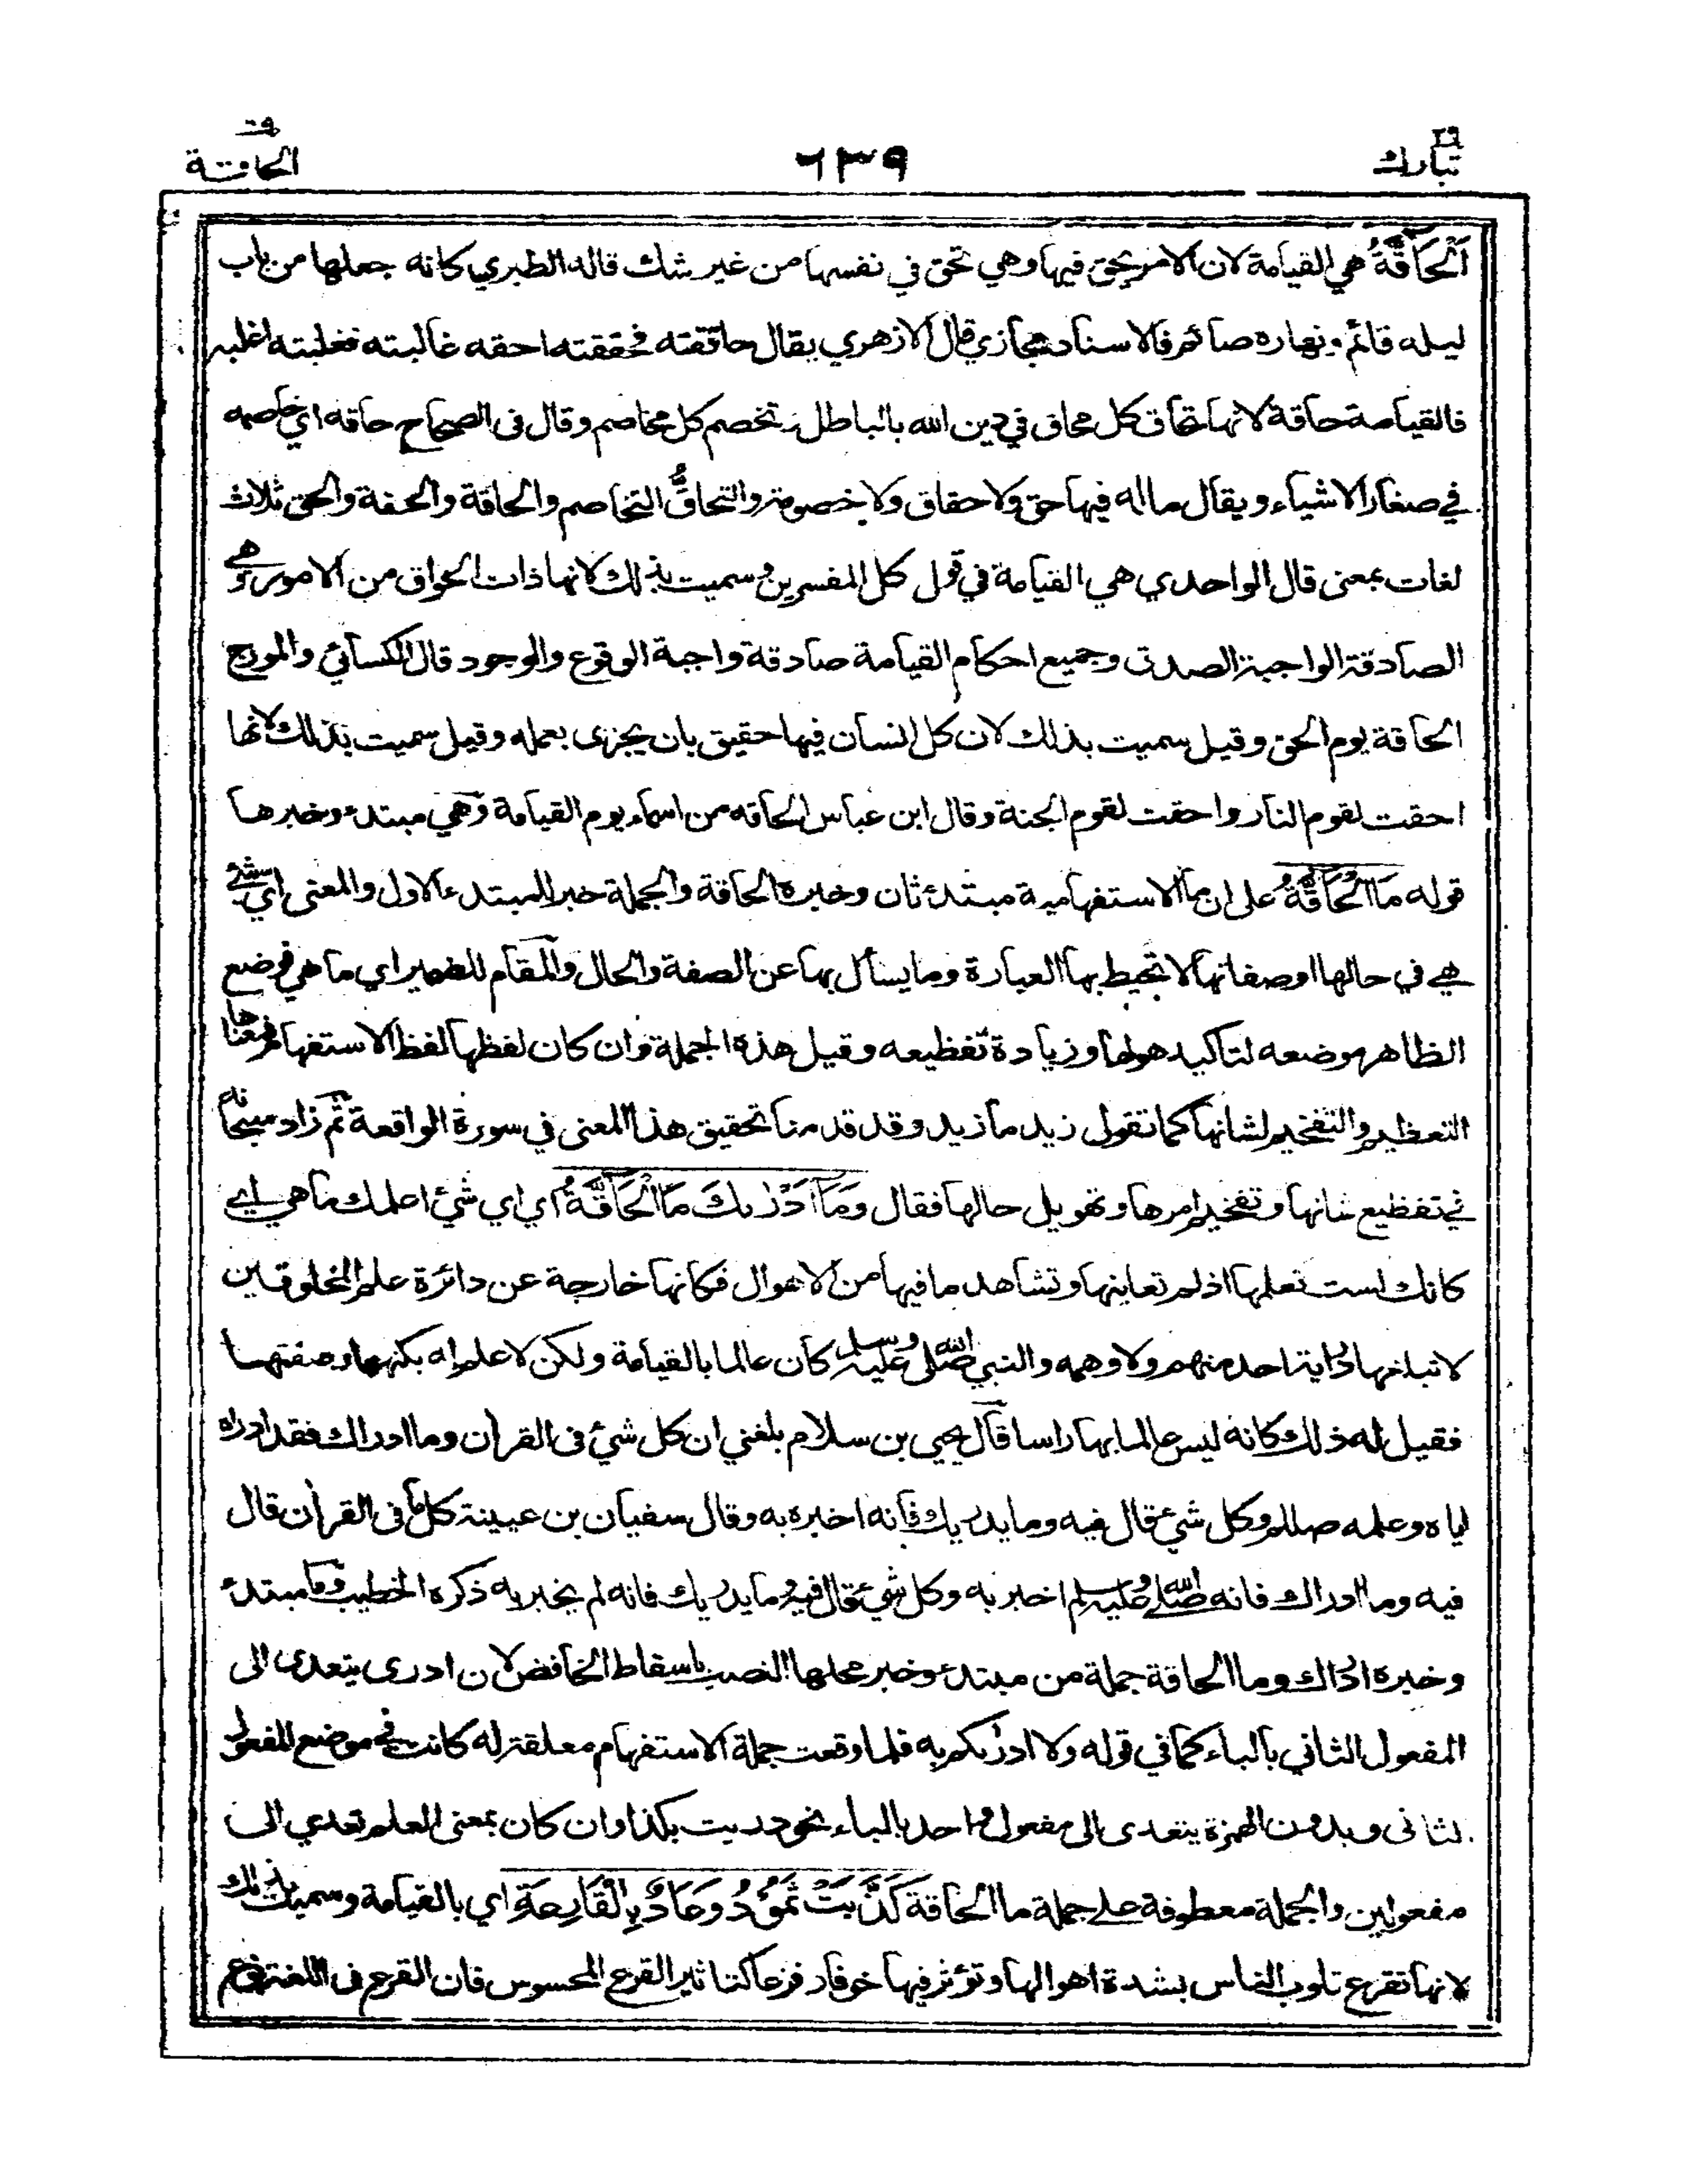 تبارك ٢٩
٦٣٩
الحاقة ٦٩
اَلْحَاقَّةُ هي القيامة لان الامر يحق فيها وهي تحق في نفسها من غير شك قاله الطبري كانه جعلها من باب
ليله قائم ونهاره صائم فالاسناد مجازي قال الازهري يقال حاققته فحققته احقه غالبته فغلبته اغلبه
فالقيامة حاقة لانها تحاق كل محاق في دين الله بالباطل وتخصم كل مخاصم وقال فى الصحاح حاقه اي خاصمه
في صغار الاشياء ويقال ماله فيها حق ولا حقاق ولا خصومة والتحاقُّ التخاصم والحاقة والحقة والحق ثلاث
لغات بمعنى قال الواحدي هي القيامة في قول كل المفسرين وسميت بذلك لانها ذات الحواق من الامور وهي
الصادقة الواجبة الصدق وجميع احكام القيامة صادقة واجبة الوقوع والوجود قال الكسائي والمورج
الحاقة يوم الحق وقيل سميت بذلك لان كل انسان فيها حقيق بان يجزى بعمله وقيل سميت بذلك لانها
احقت لقوم النار واحقت لقوم الجنة وقال ابن عباس الحاقه من اسماء يوم القيامة وهي مبتدء وخبرها
قوله مَا الْحَاقَّةُ على ان ما الاستفهامية مبتدء ثان وخبره الحاقة والجملة خبر للمبتدء الاول والمعنى اي شئ
هي في حالها او صفاتها لا تحيط بها العبارة وما يسأل بها عن الصفة والحال والمقام للضمير اي ما هي فوضع
الظاهر موضعه لتاكيد هولها وزيادة تفظيعه وقيل هذه الجملة وان كان لفظها لفظ الاستفهام فمعناها
التعظيم والتفخيم لشانها كما تقول زيد ما زيد وقد قدمنا تحقيق هذا المعنى في سورة الواقعة ثم زاد سبحانه
في تفظيع شانها وتفخيم امرها وتهويل حالها فقال وَمَا اَدْرٰىكَ مَا الْحَاقَّةُ اي اي شئ اعلمك ما هي اي
كانك لست تعلمها اذ لم تعاينها وتشاهد ما فيها من الاهوال فكانها خارجة عن دائرة علم المخلوقين
لا تبلغها دراية احد منهم ولا وهمه والنبي صلى الله عليه وسلم كان عالما بالقيامة ولكن لا علم له بكنهها وصفتها
فقيل له ذلك كانه ليس عالما بها راسا قال يحيى بن سلام بلغني ان كل شئ فى القران وما ادراك فقد ادراه
اياه وعلمه صللم وكل شئ قال فيه وما يدريك فانه اخبره به وقال سفيان بن عيينة كل ما فى القرأن قال
فيه وما ادراك فانه صلى الله عليه وسلم اخبر به وكل شئ قال فيه وما يدريك فانه لم يخبر به ذكره الخطيب وما مبتدء
وخبره ادراك وما الحاقة جملة من مبتدء وخبر محلها النصب باسقاط الخافض لان ادرى يتعدى الى
المفعول الثاني بالباء كما في قوله ولا ادرٰىكم به فلما وقعت جملة الاستفهام معلقة له كانت في موضع المفعول
الثانى وبدون الهمزة يتعدى الى مفعول واحد بالباء نحو دريت بكذا وان كان بمعنى العلم تعدي الى
مفعولين والجملة معطوفة على جملة ما الحاقة كَذَّبَتْ ثَمُوْدُ وَعَادٌ بِالْقَارِعَةِ اي بالقيامة وسميت بذلك
لانها تقرع قلوب الناس بشدة اهوالها وتؤثر فيها خوفا وفزعا كتاثير القرع المحسوس فان القرع فى اللغة نوع